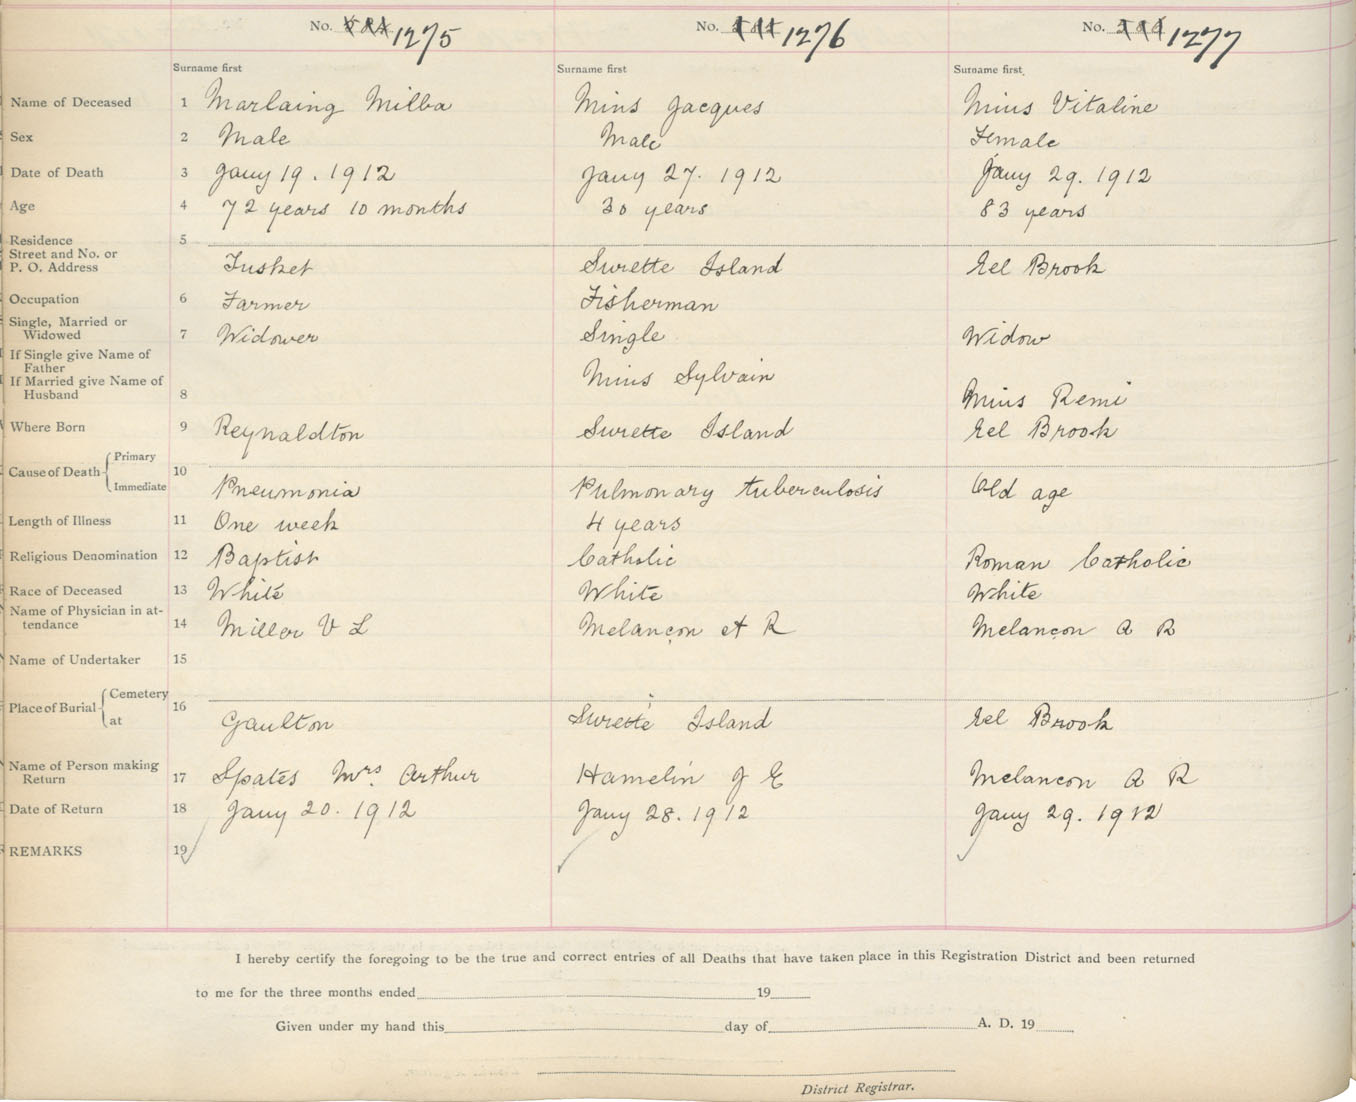 No. 1275 No. 1276 No. 1277
Surname first Surname first Surname first
Name of Deceased 1 Marlaing Milba Mius Jacques Mius Vitaline
Sex 2 Male Male Female
Date of Death 3 Jany 19. 1912 Jany 27. 1912 Jany 29. 1912
Age 4 72 years 10 months 30 years 83 years
Residence 5
Street and No. or
P. O. Address Tusket Surette Island Eel Brook
Occupation 6 Farmer Fisherman
Single, Married or
Widowed 7 Widower Single Widow
If Single give Name of
Father Mius Sylvain
If Married give Name of
Husband 8 Mius Remi
Where Born 9 Reynaldton Surette Island Eel Brook
Cause of Death Primary 10
Immediate Pneumonia Pulmonary tuberculosis Old age
Length of Illness 11 One week 4 years
Religious Denomination 12 Baptist Catholic Roman Catholic
Race of Deceased 13 White White White
Name of Physician in at-
tendance 14 Miller V L Melançon et R Melançon A R
Name of Undertaker 15
Place of Burial Cemetery 16
at Gaulton Surette Island Eel Brook
Name of Person making
Return 17 Spates Mrs. Arthur Hamelin J E Melancon A R
Date of Return 18 Jany 20. 1912 Jany 28. 1912 Jany 29. 1912
REMARKS 19
I hereby certify the foregoing to be the true and correct entries of all Deaths that have taken place in this Registration District and been returned
to me for the three months ended 19
Given under my hand this day of A. D. 19
District Registrar.